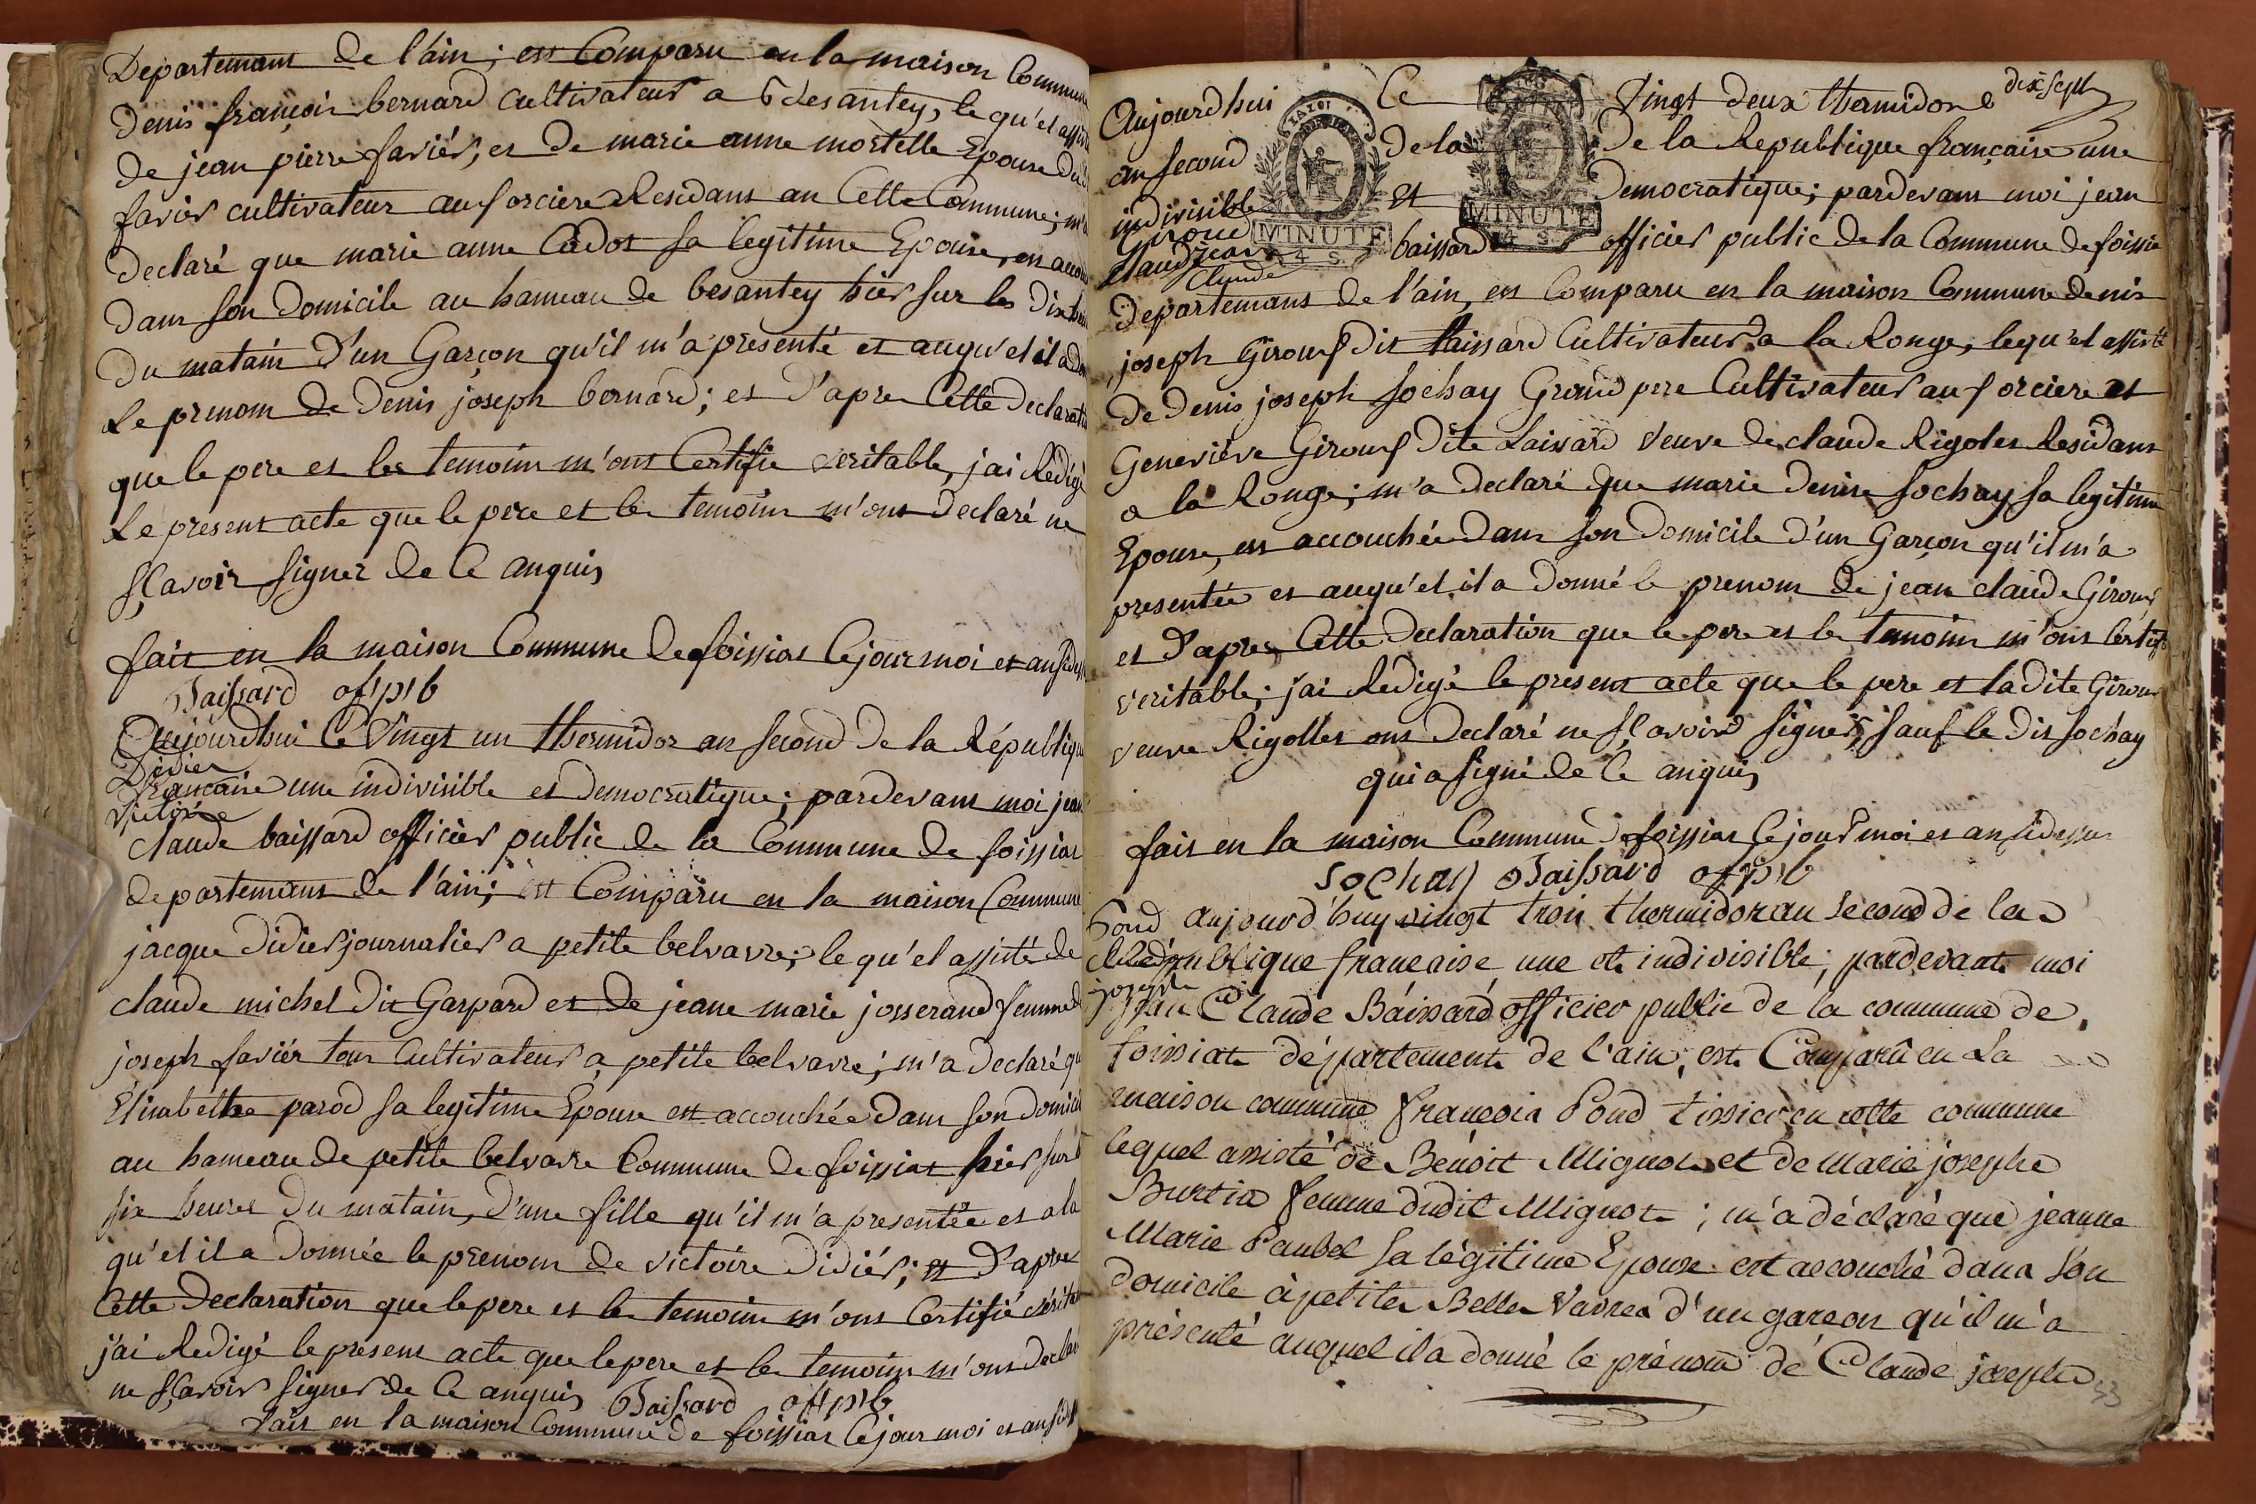 Departemans de l'ain; est Comparu en la maison Commune
denis françois bernard cultivateur a besantey, le qu'el assisté
de jean pierre favier, et de marie anne mortelle Epouse dudit
favier cultivateur au sorciere Residans an Cette Commune; m'a
declaré que marie anne Cadot sa legitime Epouse, en accou
dans son domicile au hameau de besantey hier sur les dix heures
du matain d'un Garçon qu'il m'a presenté et auqu'el il a donné
Le prenom de denis joseph bernard; et d'apres Cette declaration
que le pere et les temoins m'ont Certifie veritable, j'ai Redigé
Le present acte que le pere et les temoins m'ont declaré ne
sçavoir signer de Ce anquis
fait en la maison Commune de foissiat Ce jour moi et an sides
Baissard of pb
Aujourdhui Ce vingt un thermidor an second de la République
Didier
française une indivisible et democratique; pardevant moi jean
victoire
claude baissard officier public de la Commune de foissiat
departemans de l'ain; est Comparu en la maison Commune
jacque didier journalier a petite belvavre; le qu'el assisté de
claude michel dit Gaspard et de jeane marie josserand femme d
joseph favier tous Cultivateurs a petite belvavre; m'a declaré qu
Elisabethe parod sa legitime Epouse est accouchée dans son domici
au hameau de petite belvavre Commune de foissiat hier sur
six heures du matain, d'une fille qu'il m'a presentée et a la
qu'el il a donnée le prenom de victoire didier; et d'apres
Cette declaration que le pere et les temoins m'ont Certifié vérita
j'ai Redigé le present acte que le pere et les temoins m'ont decla
ne sçavoir signer de Ce anquis Baissard off pb
fait en la maison Commune de foissiat Ce jour moi et an sides
dix sept
Aujourdhui Ce Vingt deux thermidore
an second de la de la Republique française une
indivisible et democratique; pardevant moi jean
MINUTE
MINUTE
4 S.
4 S.
Girouf
jean
Claude
claude baissard officier public de la Commune de foissia
departemans de l'ain, est Comparu en la maison Commune denis
joseph Girouf dit Laissard Cultivateur a la Ronge, lequ'el assisté
de denis joseph sochay Grand pere Cultivateur au sorciere et
Genevieve Girouf dite Laissard veuve de claude Rigolet Residans
a la Ronge; m'a declaré que marie denise sochay sa legitime
Epouse, est accouchée dans son domicile d'un Garçon qu'il m'a
presentée et auqu'el il a donné le prenom de jean claude Girouf
et d'apres Cette declaration que le pere et les temoins m'ont Certifi
veritable; j'ai Redigé le present acte que le pere et la dite Girouf
veuve Rigollet ont declaré ne sçavoir signer, sauf le dit sochay
qui a signé de Ce anquis
fait en la maison Commune de foissiat Ce jour moi et an sidessus
sochay Baissard of pb
Pond aujourd'huy vingt trois thermidor an second de la
Claude République française une et indivisible; pardevant moi
joseph
Jean Claude Baissard officier public de la commune de
foissiat département de l'ain, est Comparû en La
maison commune françois Pond tissier en cette commune
lequel assisté de Benoit Mignot et de Marie josephe
Burtin femme dudit Mignot; m'a déclaré que jeanne
Marie Paubel sa légitime Epouse est accouché dans son
domicile à petite Belle Vavrea d'un garcon qu'il m'a
présenté auquel il a donné le prénom de Claude joseph
53